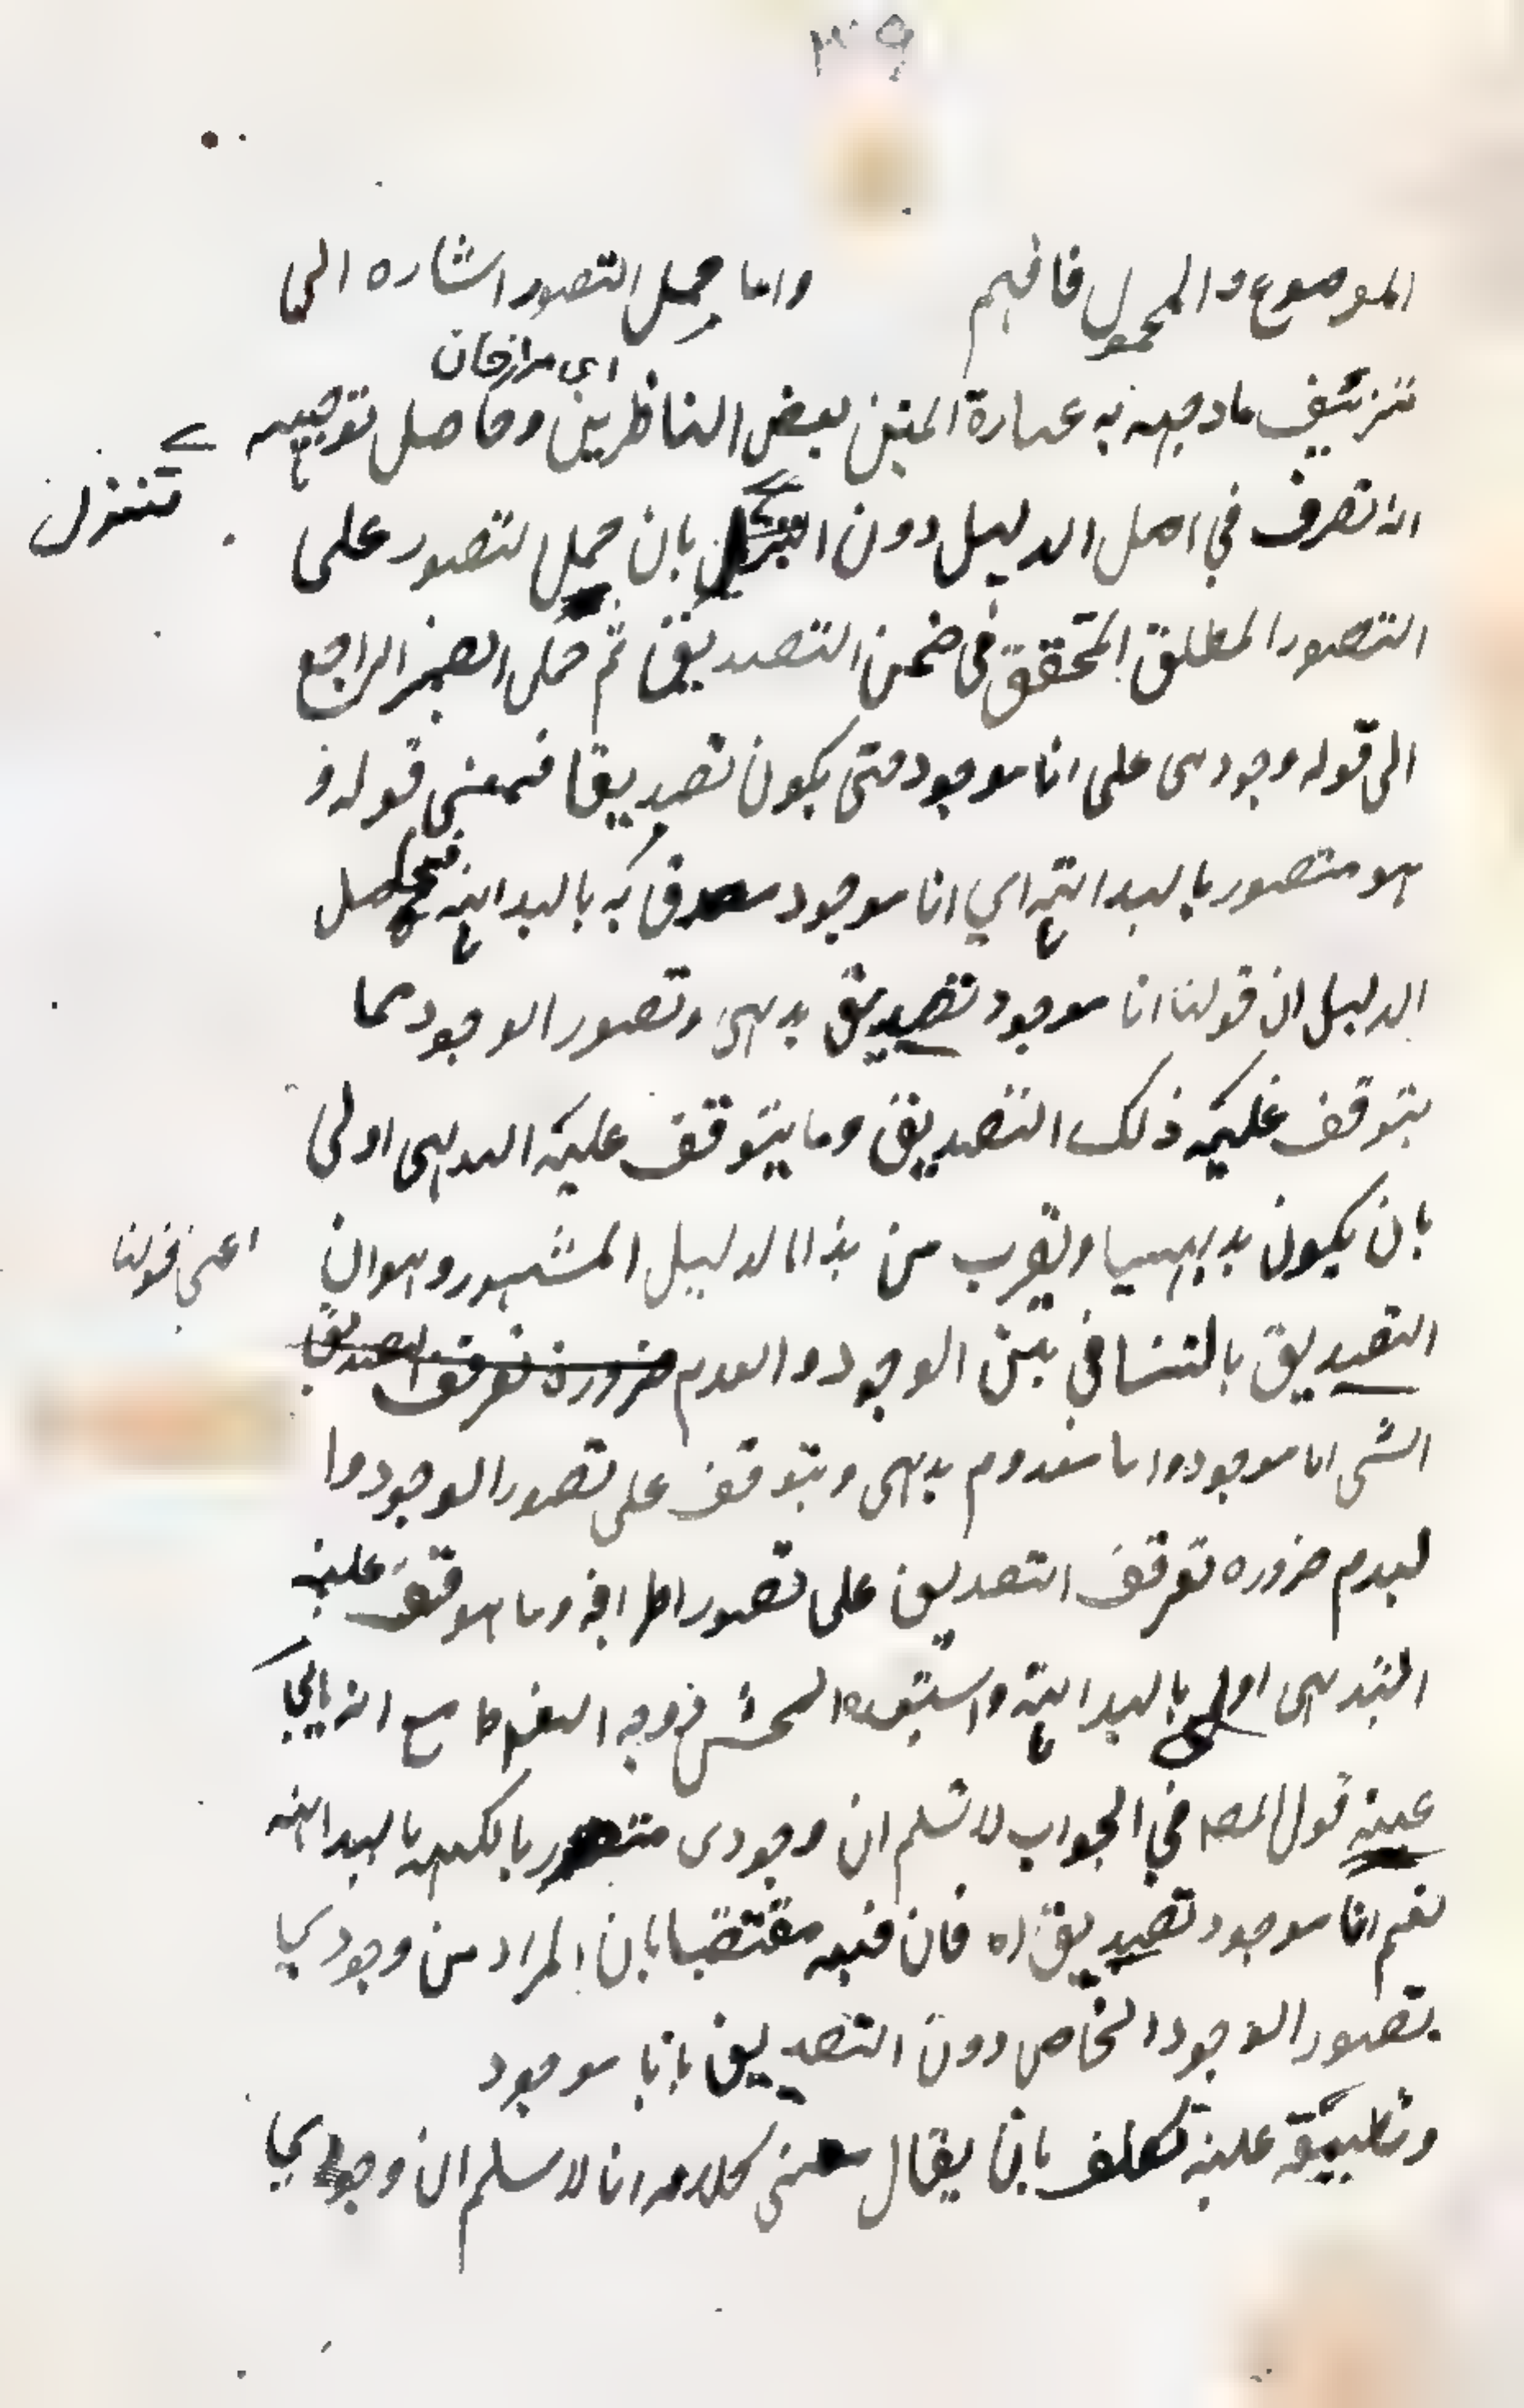 ٣٩
الموضوع والمحمول فافهم واما حمل التصور اشاره الى
اي مرزاجان
تزئيف ما وجهه به عبارة المتن بعض الناظرين وحاصل توجيهه
انه تصرف في اصل الدليل دون التنزل بان حمل التصور على
تنزل
التصور المطلق المتحقق في ضمن التصديق ثم حمل الضمير الراجع
الى قوله وجودى على انا موجود متى يكون تصديقا فمعنى قوله و
هو متصور بالبداهة اي انا موجود مصدق به بالبداهة فحاصل
الدليل ان قولنا انا موجود تصديق بديهى وتصور الوجود مما
يتوقف عليه ذلك التصديق وما يتوقف عليه البديهى اولى
بان يكون بديهيا ويقرب من هذا الدليل المشهور وهو ان
اعنى قولنا
التصديق بالتنافي بين الوجود والعدم ضرورة توقف التصديق
الشى اما موجود واما معدوم بديهى ويتوقف على تصور الوجود وا
لعدم ضروره توقف التصديق على تصور اطرافه وما هو قف عليه
البديهى اولى بالبداهة واستبعده المحشى مع انه يابى
عينه قول المصه في الجواب لا نسلم ان وجودى متصور بالكنه بالبداهة
نعم انا موجود تصديق اه فان فيه مقتضيا بان المراد من وجودي
بتصور الوجود الخاص دون التصديق بانا موجود
وتطبيقه عليه تكلف بان يقال معنى كلامه انا لا نسلم ان وجودي